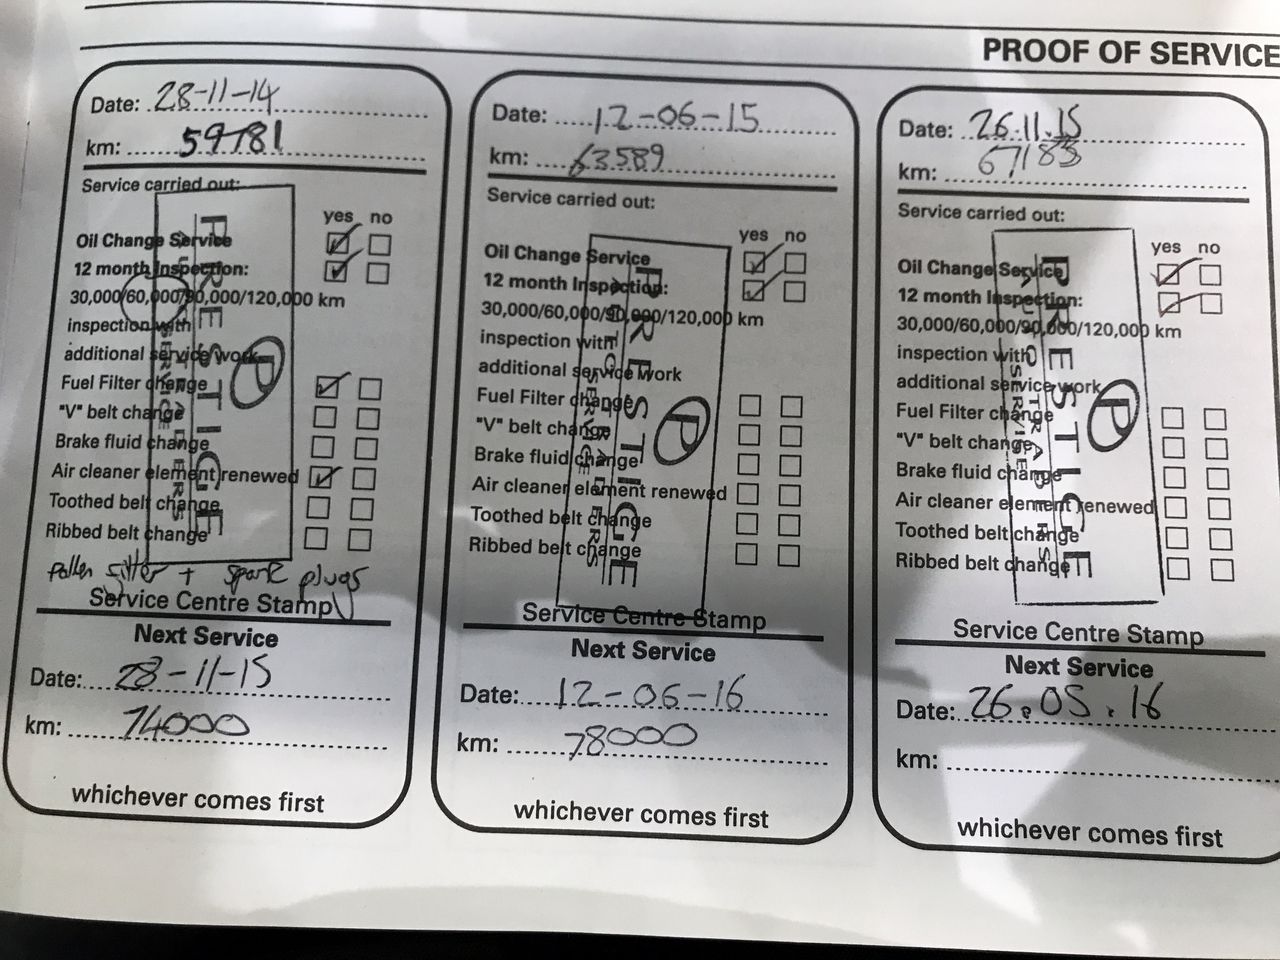 PROOF OF SERVICE
Date: 28-11-14
km: 59781
Service carried out:
yes no
Oil Change Service
12 month Inspection:
30,000/60,000/90,000/120,000 km
inspection with
additional service work
Fuel Filter change
"V" belt change
Brake fluid change
Air cleaner element renewed
Toothed belt change
Ribbed belt change
pollen filter + spark plugs
PRESTIGE
P
Service Centre Stamp
Next Service
Date: 28-11-15
km: 74000
whichever comes first
Date: 12-06-15
km: 63589
Service carried out:
yes no
Oil Change Service
12 month Inspection:
30,000/60,000/90,000/120,000 km
inspection with
additional service work
Fuel Filter change
"V" belt change
Brake fluid change
Air cleaner element renewed
Toothed belt change
Ribbed belt change
PRESTIGE
P
Service Centre Stamp
Next Service
Date: 12-06-16
km: 78000
whichever comes first
Date: 26.11.15
km: 67183
Service carried out:
yes no
Oil Change Service
12 month Inspection:
30,000/60,000/90,000/120,000 km
inspection with
additional service work
Fuel Filter change
"V" belt change
Brake fluid change
Air cleaner element renewed
Toothed belt change
Ribbed belt change
PRESTIGE
P
Service Centre Stamp
Next Service
Date: 26.05.16
km:
whichever comes first